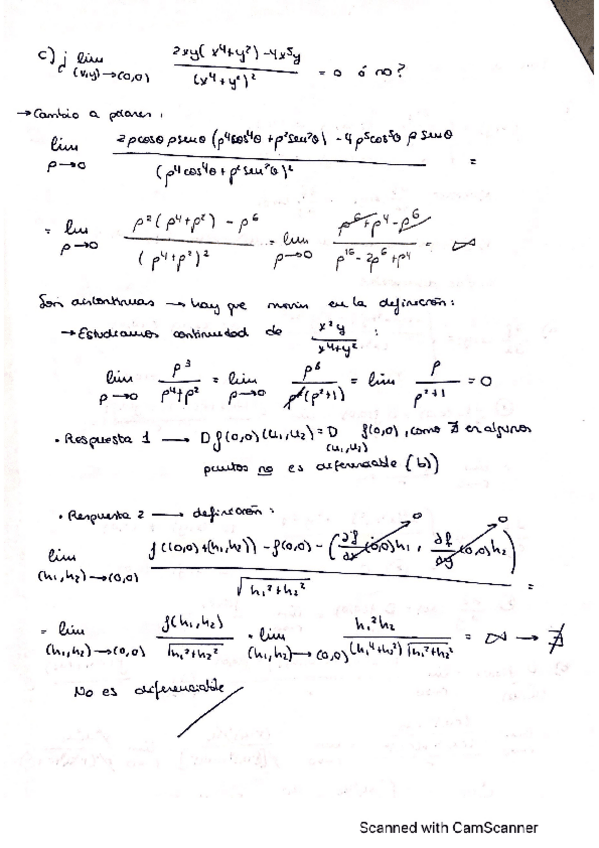 c) ¿ lim (x,y)→(0,0) (2xy(x⁴+y²)-4x⁵y)/((x⁴+y²)²) = 0 ó no?
→ Cambio a polares:
lim ρ→0 (2ρcosθ ρsenθ (ρ⁴cos⁴θ + ρ²sen²θ) - 4ρ⁵cos⁵θ ρ senθ)/((ρ⁴cos⁴θ + ρ²sen²θ)²) =
= lim ρ→0 (ρ²(ρ⁴+ρ²) - ρ⁶)/((ρ⁴+ρ²)²) = lim ρ→0 (ρ⁶+ρ⁴-ρ⁶)/(ρ¹⁶-2ρ⁶+ρ⁴) = ∞
Son discontinuas → hay que mirar en la definición:
→ Estudiamos continuidad de x²y/(x⁴+y²) :
lim ρ→0 ρ³/(ρ⁴+ρ²) = lim ρ→0 ρ⁶/(ρ²(ρ²+1)) = lim ρ/(ρ²+1) = 0
• Respuesta 1 → Df(0,0)(u₁,u₂) = D(u₁,u₂) f(0,0), como ∄ en algunos
puntos no es diferenciable (b)
• Respuesta 2 → definición:
lim (h₁,h₂)→(0,0) (f((0,0)+(h₁,h₂)) - f(0,0) - (∂f/∂x (0,0)h₁ , ∂f/∂y (0,0)h₂))/√(h₁²+h₂²) =
= lim (h₁,h₂)→(0,0) f(h₁,h₂)/√(h₁²+h₂²) = lim (h₁,h₂)→(0,0) h₁²h₂/((h₁⁴+h₂²)√(h₁²+h₂²)) = ∞ → ∄
No es diferenciable
Scanned with CamScanner